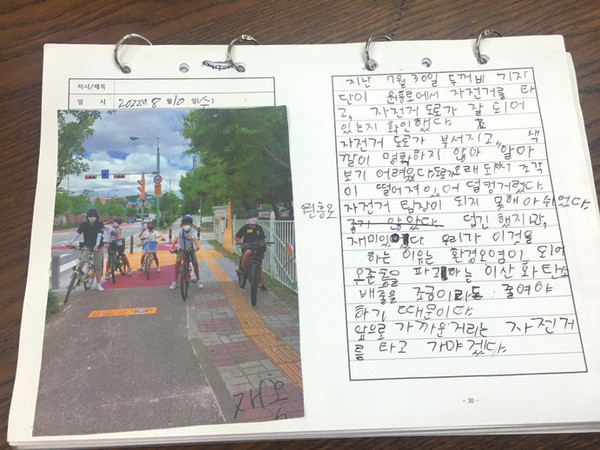 지시/제목
일 시 2022년 8월 10일(수)
지난 7월 30일 두꺼비 기자
단이 원흥로에서 자전거를 타
고, 자전거 도로가 잘 되어
있는지 확인했다.
자전거 도로가 부서지고, 색
깔이 명확하지 않아 알아
보기 어려웠다. 도로가 오래 되서 조각
이 떨어져있어 덜컹거렸다.
원흥로 자전거 탐장이 되지 못해 아쉬웠다
않았다 덥긴 했지만,
재미있었다 우리가 이것을
하는 이유는 환경오염이 되어
오존층을 파괴하는 이산화탄소
배출을 조금이라도 줄여야
하기 때문이다.
앞으로 가까운거리는 자전거
를 타고 가야겠다.
- 30 -